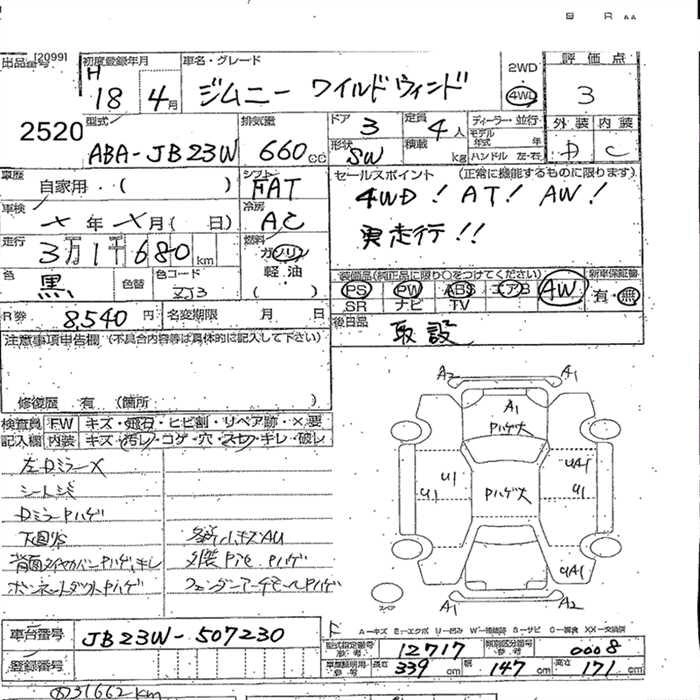 [2099]
出品番号 初度登録年月 車名・グレード 2WD 評価点
H 18 4月 ジムニー ワイルドウィンド 4WD 3
2520
型式 排気量 ドア 3 定員 4人 ディーラー・並行 外装 内装
ABA-JB23W 660cc 形状 SW 積載 kg モデル年式 年 D C
ハンドル 左・右
車歴 自家用・( ) シフト FAT セールスポイント (正常に機能するものに限ります)
車検 ×年×月( 日) 冷房 AC 4WD! AT! AW!
走行 3万1千680km 燃料 ガソリン 軽油 ( ) 実走行!!
色 黒 色替 色コード ZJ3
装備品(純正品に限り○をつけてください) 新車保証書
PS PW ABS エアB AW 有・無
SR ナビ TV
R券 8,540円 名変期限 月 日 後日品 取設
注意事項申告欄(不具合内容等は具体的に記入して下さい)
修復歴 有 (箇所 )
検査員記入欄 FW キズ・飛石・ヒビ割・リペア跡・×要
内装 キズ・汚レ・コゲ・穴・スレ・キレ・破レ
左Dミラー×
シートシミ
DミラーPハゲ
下回サビ
背面タイヤカバーPハゲ、キレ
ボンネットダクトPハゲ
各所小キズAU
外装Pied Pハゲ
フェンダーアーチモールPハゲ
A2 A1
A1
Pハゲ大
U1 UA1
U1 Pハゲ大 U1
UA1
スペア
A1 A2
A-キズ E-エクボ U-凹み W-補修跡 S-サビ C-腐食 XX-交換済
車台番号 JB23W-507230
登録番号
型式指定番号 参考 12717 類別区分番号 参考 0008
車庫証明用・参考 長さ 339cm 幅 147cm 高さ 171cm
31662km